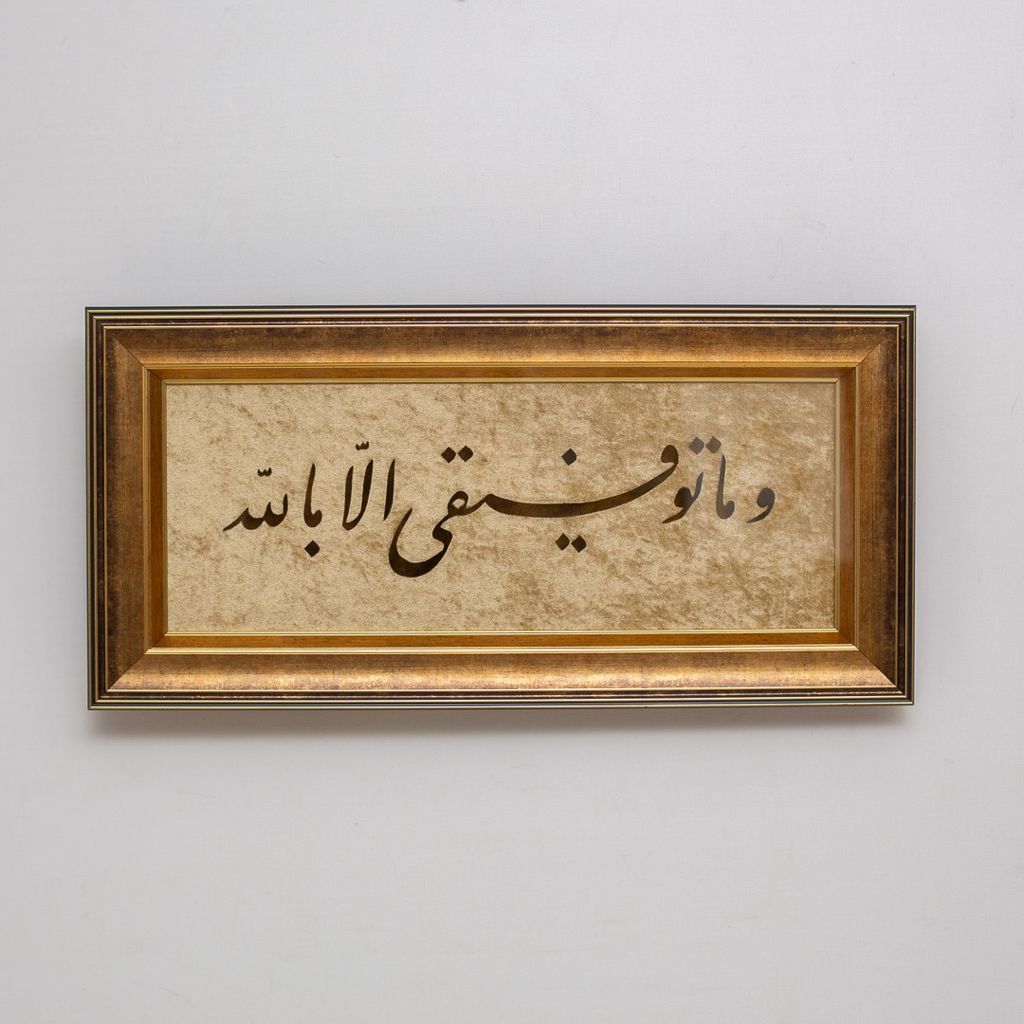 وما توفيقى الّا باللّه